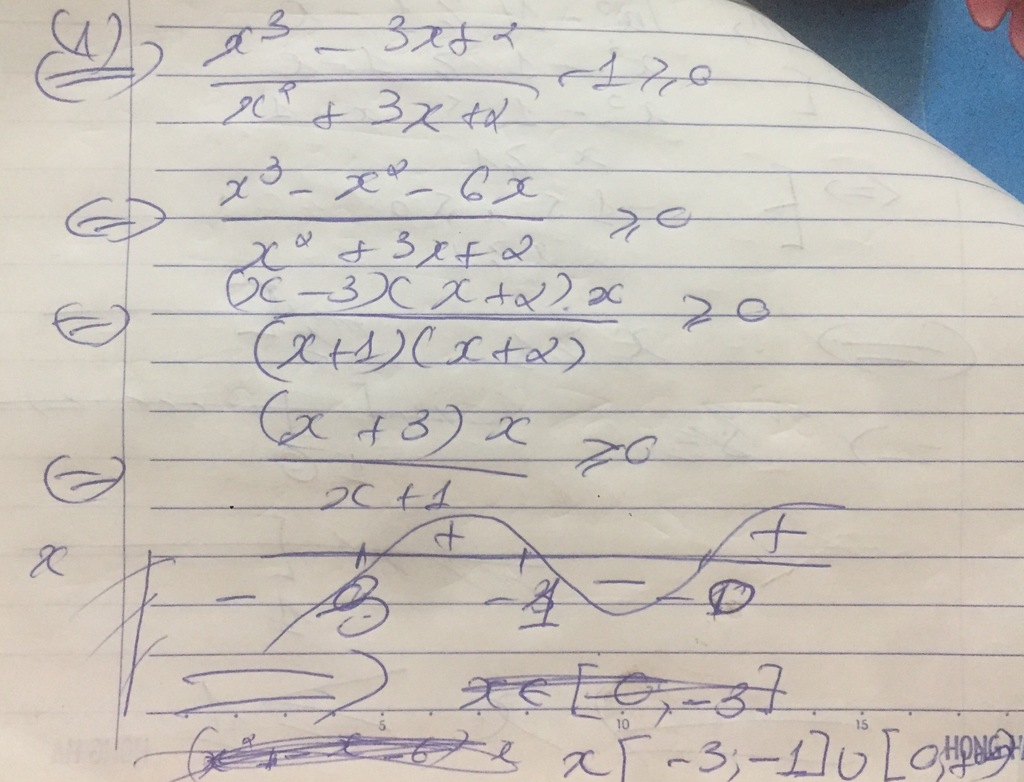 (1) ⇔ (x³ - 3x + 2)/(x² + 3x + 2) - 1 ≥ 0
⇔ (x³ - x² - 6x)/(x² + 3x + 2) ≥ 0
⇔ ((x - 3)(x + 2).x)/((x + 1)(x + 2)) ≥ 0
⇔ ((x + 3) x)/(x + 1) ≥ 0
+ +
x
- -1 - 0
⇒ x ∈ [0, -3]
5 10 15
x [-3; -1] ∪ [0,
HONG HA